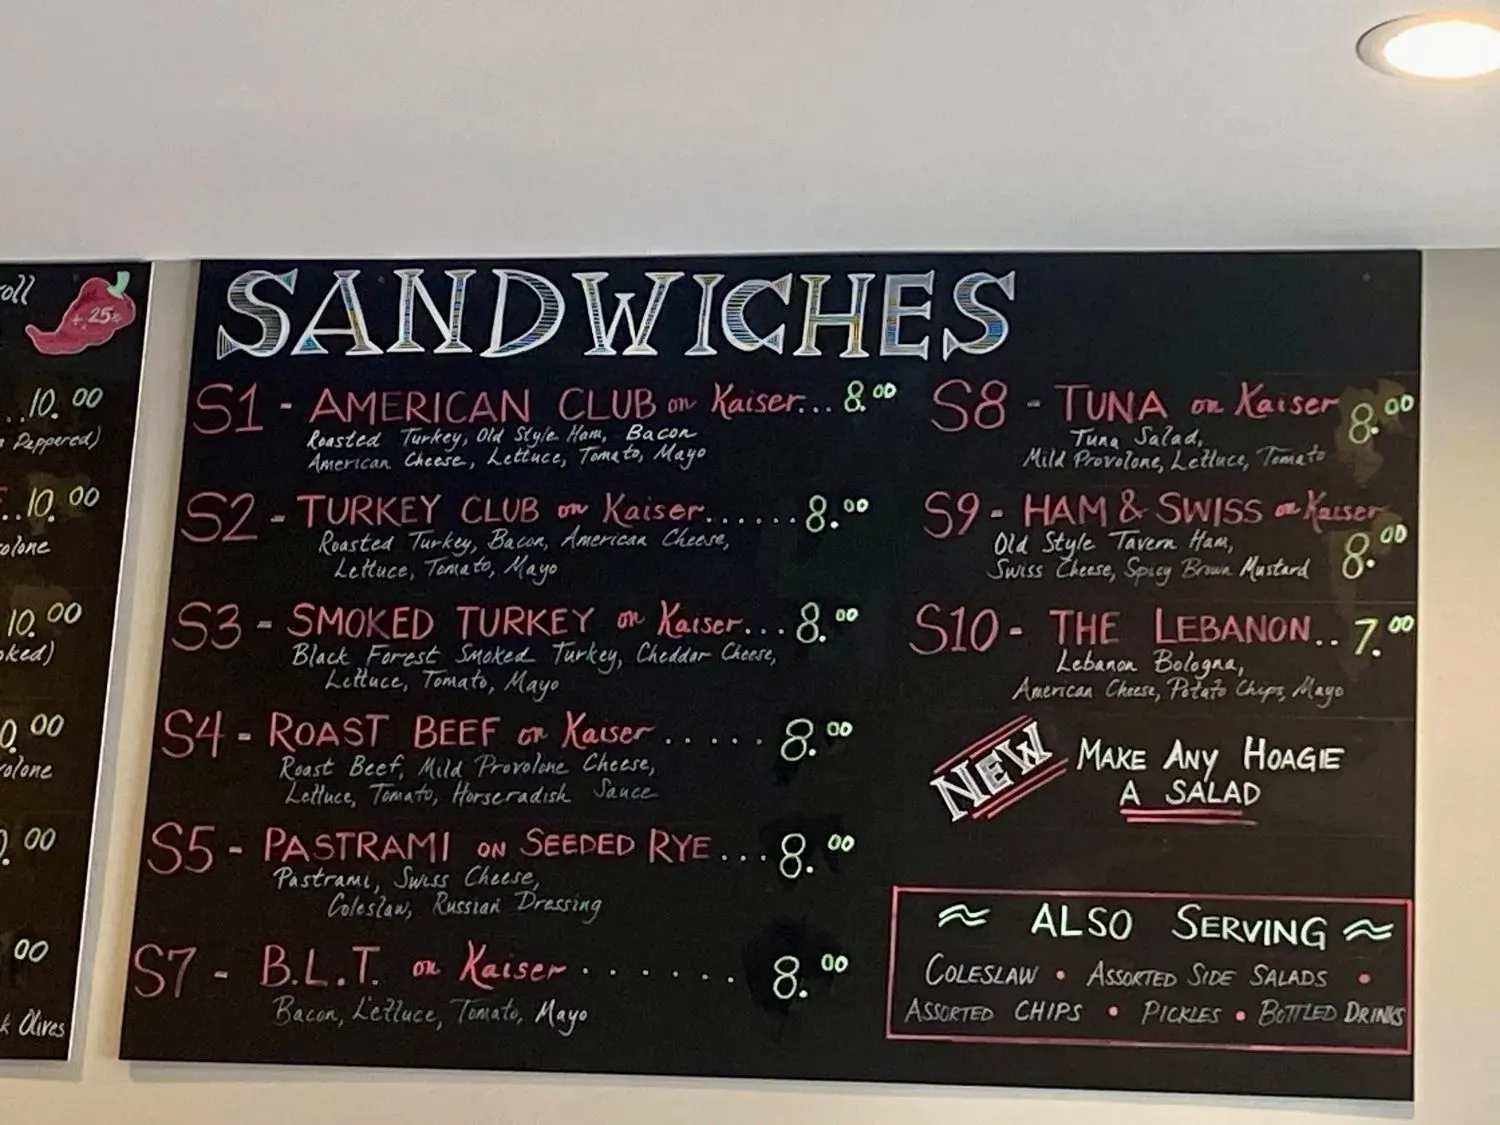 roll
+.25¢
..10.00
Peppered)
..10.00
olone
10.00
oked)
0.00
olone
0.00
00
k Olives
SANDWICHES
S1 - AMERICAN CLUB on Kaiser... 8.00
Roasted Turkey, Old Style Ham, Bacon
American Cheese, Lettuce, Tomato, Mayo
S2 - TURKEY CLUB on Kaiser...... 8.00
Roasted Turkey, Bacon, American Cheese,
Lettuce, Tomato, Mayo
S3 - SMOKED TURKEY on Kaiser... 8.00
Black Forest Smoked Turkey, Cheddar Cheese,
Lettuce, Tomato, Mayo
S4 - ROAST BEEF on Kaiser ..... 8.00
Roast Beef, Mild Provolone Cheese,
Lettuce, Tomato, Horseradish Sauce
S5 - PASTRAMI ON SEEDED RYE... 8.00
Pastrami, Swiss Cheese,
Coleslaw, Russian Dressing
S7 - B.L.T. on Kaiser ...... 8.00
Bacon, Lettuce, Tomato, Mayo
S8 - TUNA on Kaiser 8.00
Tuna Salad,
Mild Provolone, Lettuce, Tomato
S9 - HAM & SWISS on Kaiser
8.00
Old Style Tavern Ham,
Swiss Cheese, Spicy Brown Mustard
S10 - THE LEBANON.. 7.00
Lebanon Bologna,
American Cheese, Potato Chips, Mayo
NEW MAKE ANY HOAGIE
A SALAD
≈ ALSO SERVING ≈
COLESLAW • ASSORTED SIDE SALADS •
ASSORTED CHIPS • PICKLES • BOTTLED DRINKS